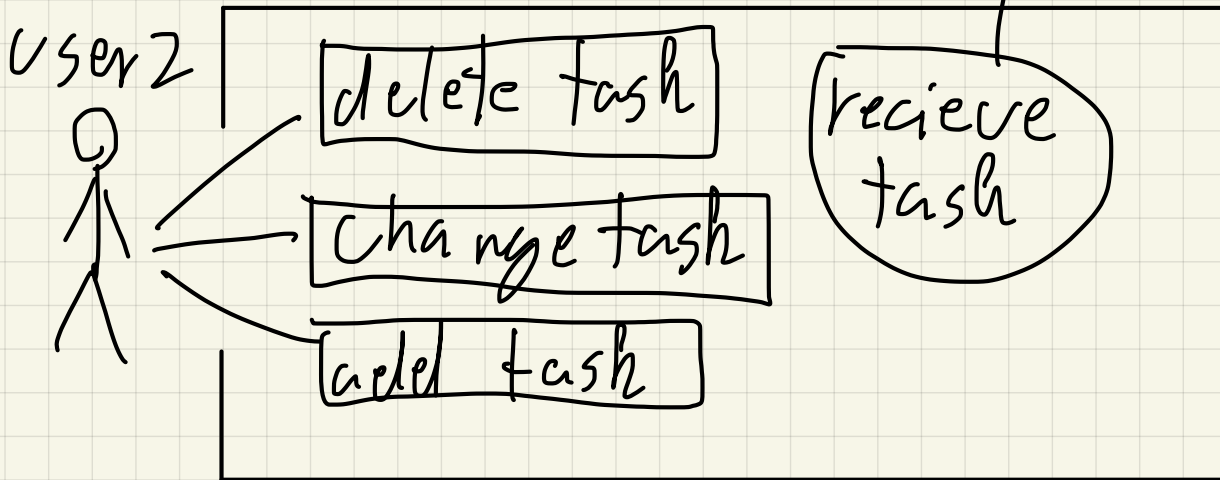 user 2
delete tash
change tash
add tash
recieve
tash